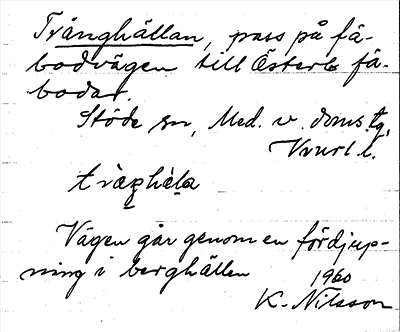 Trånghällan, pass på fä-
bodvägen till Österb fä-
bodar.
Stöde sn, Med. v. doms. tg,
l.
Vägen går genom en fördjup-
ning i berghällen 1960
K. Nilsson